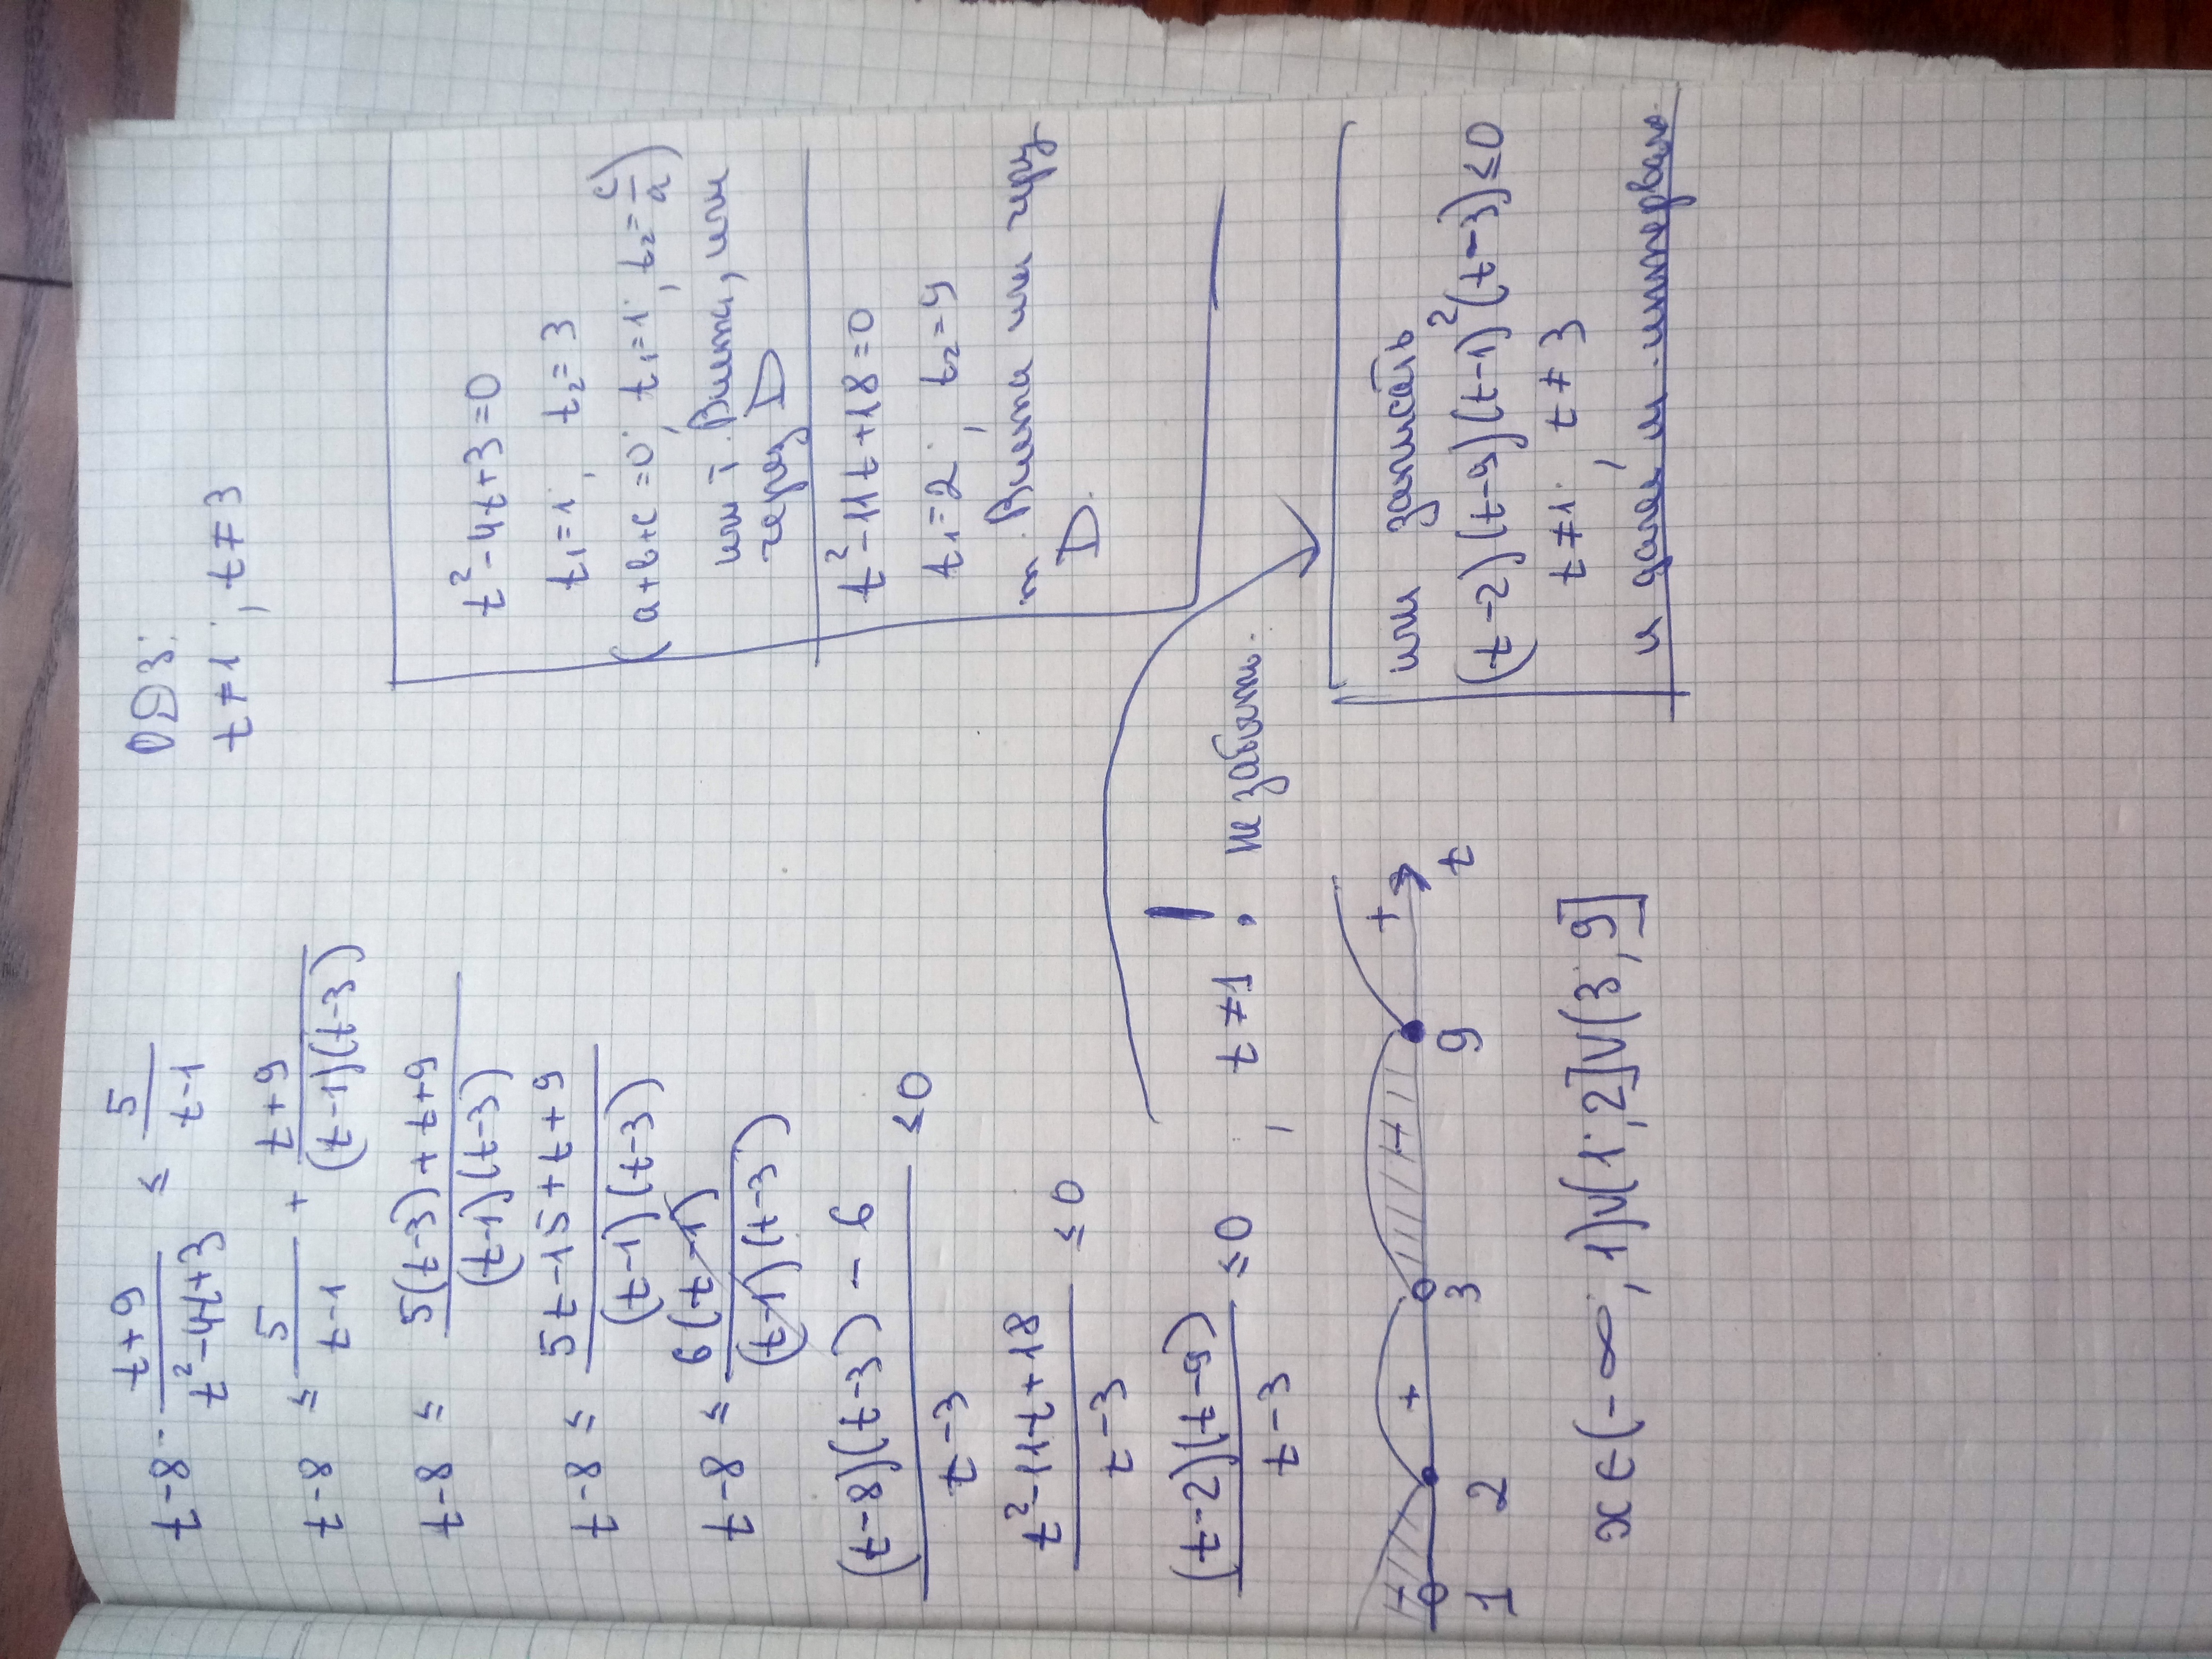 t-8 - (t+9)/(t²-4t+3) ≤ 5/(t-1)
t-8 ≤ 5/(t-1) + (t+9)/((t-1)(t-3))
t-8 ≤ (5(t-3)+t+9)/((t-1)(t-3))
t-8 ≤ (5t-15+t+9)/((t-1)(t-3))
t-8 ≤ (6(t-1))/((t-1)(t-3))
((t-8)(t-3) - 6)/(t-3) ≤ 0
(t²-11t+18)/(t-3) ≤ 0
((t-2)(t-9))/(t-3) ≤ 0, t≠1 ! не забыть.
- + - + t
1 2 3 9
x ∈ (-∞; 1)∪(1; 2]∪(3; 9]
ОДЗ:
t≠1; t≠3
t²-4t+3=0
t₁=1; t₂=3
(a+b+c=0; t₁=1; t₂=c/a)
или т. Виета, или
через D
t²-11t+18=0
t₁=2; t₂=9
т. Виета или чер
D.
или записать
(t-2)(t-9)(t-1)²(t-3)≤0
t≠1; t≠3
и далее м. интервалов.